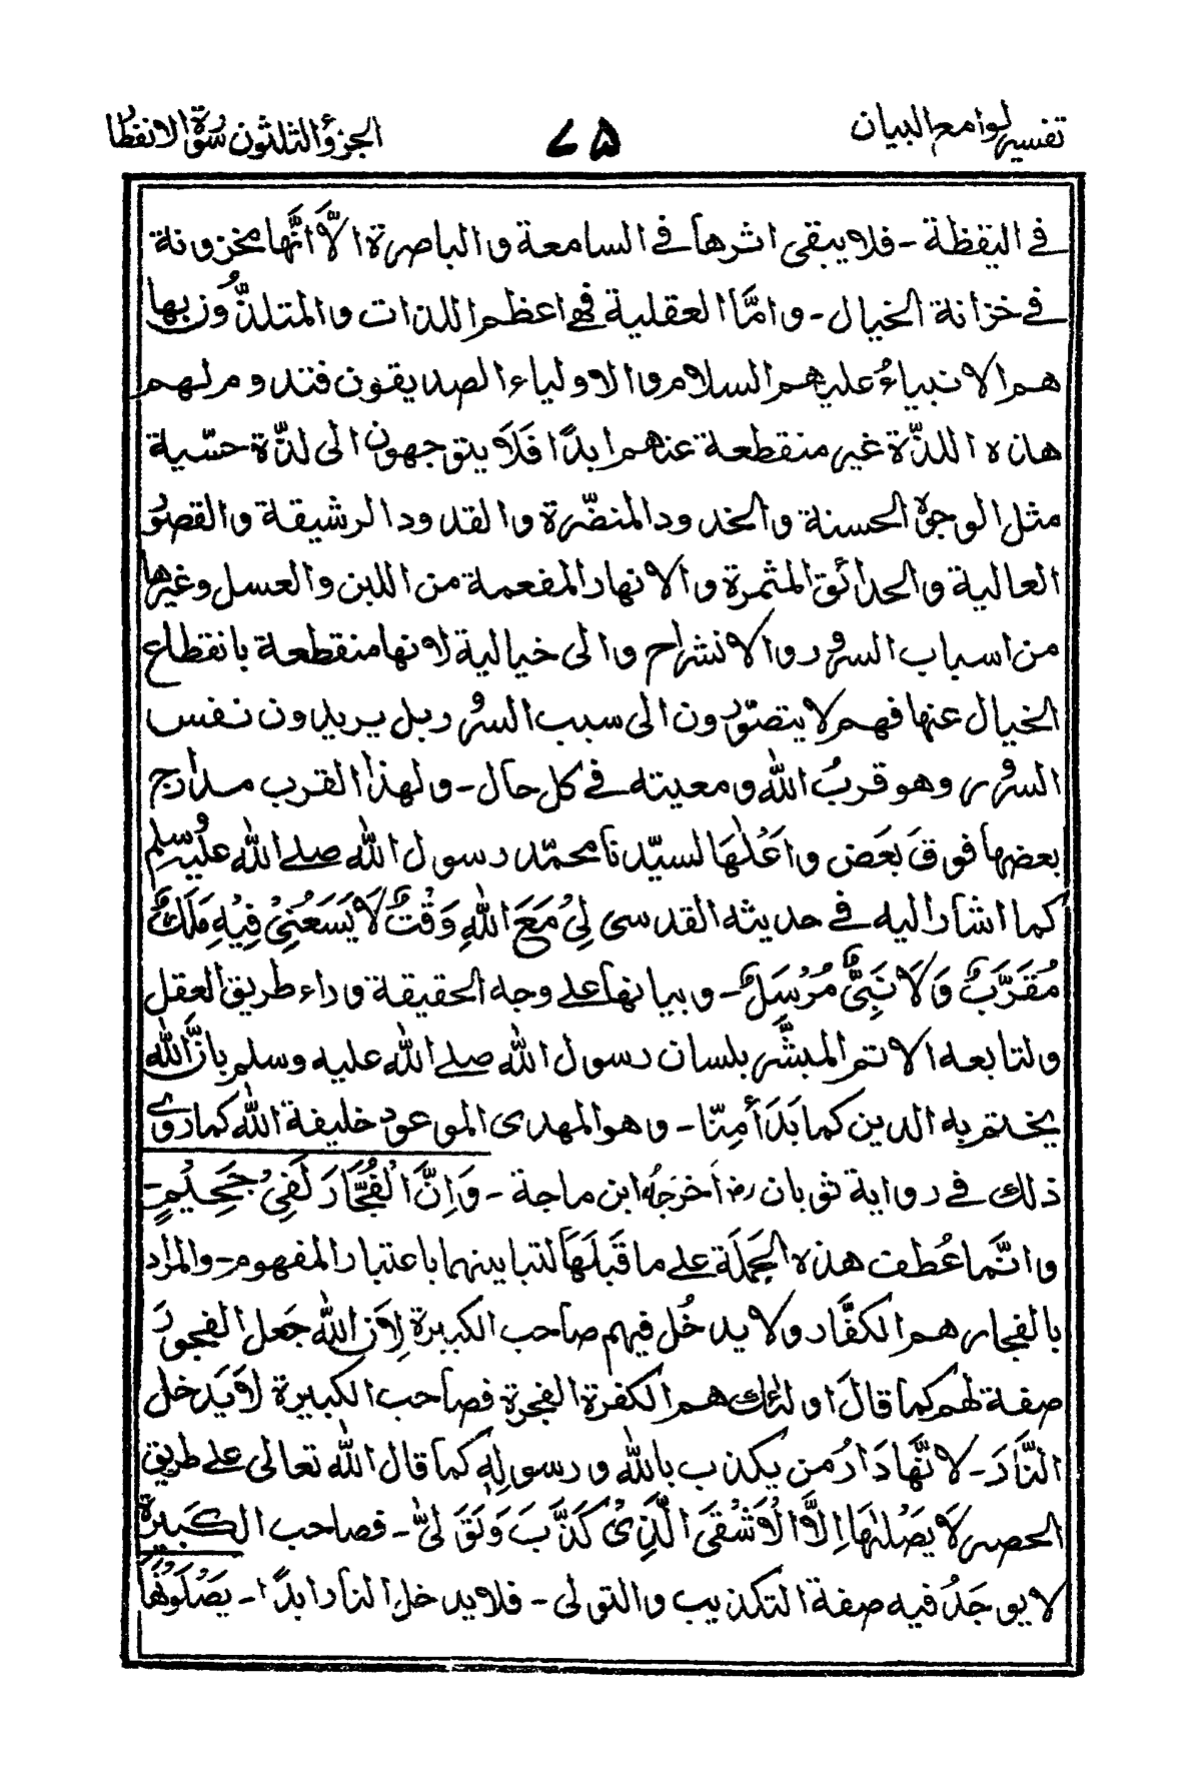 تفسير لوامع البيان ٧٥ الجزؤ الثلثون سورة الانفطار
في اليقظة - فلا يبقى اثرها في السامعة والباصرة الاَّ انَّها مخزونة
في خزانة الخيال - وامَّا العقلية فهي اعظم اللذات والمتلذُّوذ بها
هم الانبياءُ عليهم السلام والاولياء الصديقون فتدوم لهم
هاذه اللذّة غير منقطعة عنهم ابدًا فَلَا يتوجهون الى لذّة حسّية
مثل الوجوه الحسنة والخدود المنضّرة والقدود الرشيقة والقصور
العالية والحدائق المثمرة والانهار المفعمة من اللبن والعسل وغيرها
من اسباب السرور والانشراح والى خيالية لانها منقطعة بانقطاع
الخيال عنها فهم لا يتصوّرون الى سبب السرور بل يريدون نفس
السرور وهو قربُ الله ومعيته في كل حال - ولهذا القرب مدارج
بعضها فوقَ بَعَض واَعْلٰهَا لسيّدنا محمّد رسول الله صلے الله عليه وسلم
كما اشار اليه في حديثه القدسى لِىْ مَعَ اللهِ وَقْتٌ لَا يَسَعُنِىْ فِيْهِ مَلَكٌ
مُقَرَّبٌ وَلَا نَبِىٌّ مُرْسَلٌ - وبيانها علے وجه الحقيقة وراء طريق العقل
ولتابعه الاتم المبشَّر بلسان رسول الله صلے الله عليه وسلم بانَّ الله
يختم به الدين كما بَدَأ مِنّا - وهو المهدى الموعود خليفة الله كما روى
ذلك في رواية ثوبان رض اَخرجهُ ابن ماجة - وَاِنَّ الْفُجَّارَ لَفِىْ جَحِيْمٍ -
وانَّما عُطف هذه الجملَة علے ما قَبلَهَا لتباينهما باعتبار المفهوم - والمراد
بالفجار هم الكفَّار ولا يدخُل فيهم صاحب الكبيرة لِاَنَّ الله جَعل الفجورَ
صفة لهم كما قالَ اولئك هم الكفرة الفجرة فصاحب الكبيرة لَا يَدخل
النَّارَ - لانَّها دَارُ من يكذب بالله ورسولِهِ كما قال الله تعالى علے طريق
الحصر لَا يَصْلٰىهَا اِلَّا الْاَشْقَى الَّذِىْ كَذَّبَ وَتَوَلّٰى - فصاحب الكَبيرة
لا يوجَدُ فيه صفة التكذيب والتولى - فلا يدخل النار ابدًا - يَصْلَوْنَهَا